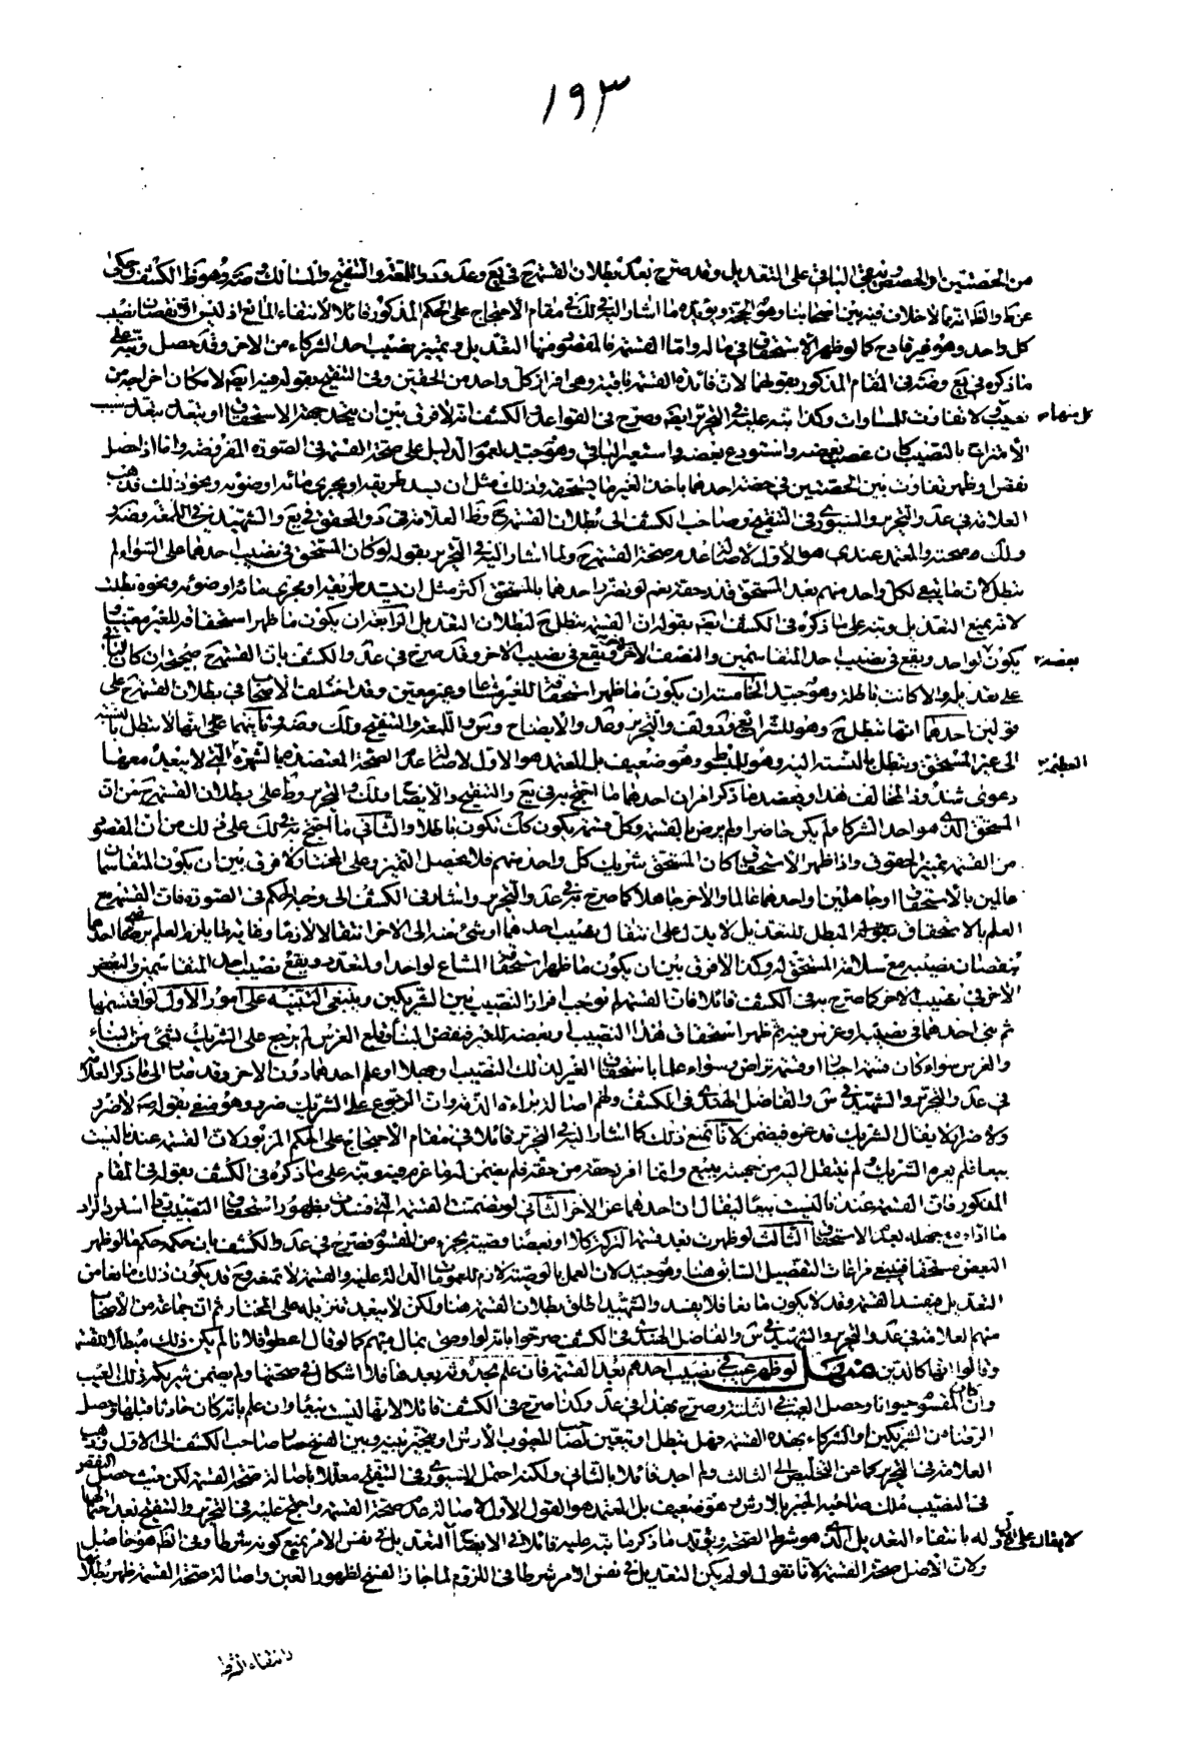 ١٩٣
من الحصتين او الحصص يبقى الباقي على التعديل وقد صرح بعدم بطلان القسمة ح في يع وعد ود واللمعة والتنقيح والمسالك وضه وهو ظ الكشف وحكى
عن ط والظ انه مما لا خلاف فيه بين اصحابنا وهو الحجة ويؤيده ما اشار اليه في لك في مقام الاحتجاج على الحكم المذكور قائلا لانتفاء المانع اذ ليس الا نقصان نصيب
كل واحد وهو غير قادح كما لو ظهر الاستحقاق في ماله واما القسمة فالمقصود منها التعديل وتمييز نصيب احد الشركاء من الاخر وقد حصل ونبه على
ما ذكره في يع وضه في المقام المذكور بقولهما لان فائدة القسمة باقية وهي افراز كل واحد من الحقين وفي التنقيح بقوله
كل منهما نصيب لا تفاوت للمساوات وكذا نبه عليه في التحرير ايضا وصرح في القواعد الكشف انه لا فرق بين ان يتحد جهة الاستحقاق او يتعدد
بعضه وهو جيد لعموم الدليل على صحة القسمة في الصورة المفروضة واما اذا حصل
نقص او ظهر تفاوت بين الحصتين في حصة احدهما باخذ الغير ما يستحقه وذلك مثل ان يسد طريقه او مجرى مائه او ضوئه ونحو ذلك فذهب
العلامة في عد والتحرير والسيوري في التنقيح وصاحب الكشف الى بطلان القسمة ح وظ العلامة في د والمحقق في يع والشهيدين في اللمعة وضه
ولك صحته والمعتمد عندي هو الاول لاصالة عدم صحة القسمة ح ولما اشار اليه في التحرير بقوله لو كان المستحق في نصيب احدهما على السواء لم
تبطل لان ما يبقى لكل واحد منهم بعد المستحق قدر حقه نعم لو تضرر احدهما بالمستحق اكثر مثل ان يسد طريقه او مجرى مائه او ضوئه ونحوه بطلت
لانه يمنع التعديل ونبه على ما ذكره في الكشف ايضا بقوله ان القسمة تبطل ح لبطلان التعديل الرابعة ان يكون ما ظهر استحقاقه للغير معينا
يكون لواحد ويقع في نصيب احد المتقاسمين والنصف الاخر يقع في نصيب الاخر وقد صرح في عد والكشف بان القسمة ح صحيحة ان كان الباقي
بعضه
على تعديله والا كانت باطلة وهو جيد الخامسة ان يكون ما ظهر استحقاقه للغير مشاعا وغير معين وقد اختلف الاصحاب في بطلان القسمة ح على
قولين احدهما انها تبطل ح وهو للشرايع ود ولف والتحرير وعد والايضاح وس واللمعة والتنقيح ولك وضه وثانيهما على انها لا تبطل بالنسبة
الى غير المستحق وتبطل بالنسبة اليه وهو للمبسوط وهو ضعيف بل المعتمد هو الاول لاصالة عدم الصحة المعتضدة بالشهرة التي لا يبعد معها
العظيمة
دعوى شذوذ المخالف هذا ويعضد ما ذكر امران احدهما ما احتج به في يع والتنقيح والايضاح ولك والتحرير وظ على بطلان القسمة ح من ان
المستحق الذي هو احد الشركاء لم يكن حاضرا ولم يرض بالقسمة وكل قسمة يكون كك تكون باطلا والثاني ما احتج به في لك على ذلك من ان المقصود
من القسمة تمييز الحقوق واذا ظهر الاستحقاق كان المستحق شريك كل واحد منهم فلا يحصل التمييز وعلى المختار لا فرق بين ان يكون المتقاسمان
عالمين بالاستحقاق او جاهلين او احدهما عالما والاخر جاهلا كما صرح به في عد والتحرير واشار في الكشف الى وجه الحكم في الصورة فان القسمة مع
العلم بالاستحقاق المبطل للتعديل لا يدل على انتقال نصيب احدهما او شئ منه الى الاخر انتقالا لازما وغاية ما يلزم العلم برضى احدهما
بنقصان نصيبه مع سلامة المستحق له وكذا لا فرق بين ان يكون ما ظهر استحقاقه المشاع لواحد او لمتعدد ويقع نصيب احد المتقاسمين والبعض
الاخر في نصيب الاخر كما صرح به في الكشف قائلا فان القسمة لم توجب افراز النصيب بين الشريكين وينبغي التنبيه على امور الاول لو اقتسمها
ثم بنى احدهما في نصيبه او غرس فيه ثم ظهر استحقاق هذا النصيب او بعضه للغير فنقض البناء وقلع الغرس لم يرجع على الشريك بشئ من البناء
والغرس سواء كان قسمة اجبار او قسمة تراض وسواء علما باستحقاق الغير لذلك النصيب او جهلا او علم احدهما دون الاخر وقد صار الى ما ذكر العلامة
في عد والتحرير والشهيد في س والفاضل الهندي في الكشف ولهم اصالة براءة الذمة وان الرجوع على الشريك ضرر وهو منفي بقوله ص لا ضرر
ولا ضرار لا يقال الشريك قد غره فيضمن لانا نمنع ذلك كما اشار اليه في التحرير قائلا في مقام الاحتجاج على الحكم المزبور لان القسمة عندنا ليست
بيعا فلم يغره الشريك ولم ينتقل اليه من جهته ببيع وانما افرز حقه من حقه فلم يضمن له ما غرم فيه ونبه على ما ذكره في الكشف بقوله في المقام
المذكور فان القسمة عندنا ليست بيعا ليقال ان احدهما غر الاخر الثاني
ما اداه مع جهله بعدم الاستحقاق الثالث لو ظهرت بعد قسمة التركة كلا او بعضا وصية بجزء من المقسوم فصرح في عد والكشف بان حكمه حكم ما لو ظهر
البعض مستحقا فينبغي مراعات التفصيل السابق هنا وهو جيد لان العمل بالوصية لازم للعمومات الدالة عليه والقسمة لا تمنع منه وح قد يكون ذلك مانعا من
التعديل فيفسد القسمة وقد لا يكون مانعا فلا يفسد والشهيد اطلق بطلان القسمة هنا ولكن لا يبعد تنزيله على المختار ثم ان جماعة من الاصحاب
منهم العلامة في عد والتحرير والشهيد في س والفاضل الهندي في الكشف صرحوا بانه لو اوصى بمال مبهم كما لو قال اعطوا فلانا لم يكن ذلك مبطلا للقسمة
وقالوا انها كالدين منها لو ظهر عيب في نصيب احدهم بعد القسمة فان علم تجدده بعدها فلا اشكال في صحتها ولم يضمن شريكه ذلك العيب
وان كان المقسوم حيوانا وحصل العيب في الثلثة وصرح بهذا في عد وكذا صرح في الكشف قائلا لانها ليست بيعا وان علم بانه كان حادثا قبلها وحصل
الرضا من الشريكين او الشركاء بهذه القسمة فهل تبطل او يتعين لصاحب المعيوب الارش او يتخير بينه وبين الفسخ صار صاحب الكشف الى الاول وذهب
العلامة في التحرير كما عن التخليص الى الثالث ولم اجد قائلا بالثاني ولكنه احتمل السيوري في التنقيح معللا باصالة صحة القسمة لكن حيث حصل النقص
في النصيب ملك صاحبه الجبر بالارش وهو ضعيف بل المعتمد هو القول الاول لاصالة عدم صحة القسمة واحتج عليه في التحرير والتنقيح بعد اختيارهما
له بانتفاء التعديل الذي هو شرط الصحة ويؤيد ما ذكر ما نبه عليه قائلا في الايضاح التعديل في نفس الامر يمنع كونه شرطا وفي الظ هو حاصل
لا يقال على
ولان الاصل صحة القسمة لانا نقول لو لم يكن التعديل في نفس الامر شرطا في اللزوم لما جاز الفسخ لظهور الغبن واصالة صحة القسمة ظهر بطلانها
بانتفاء الشرط